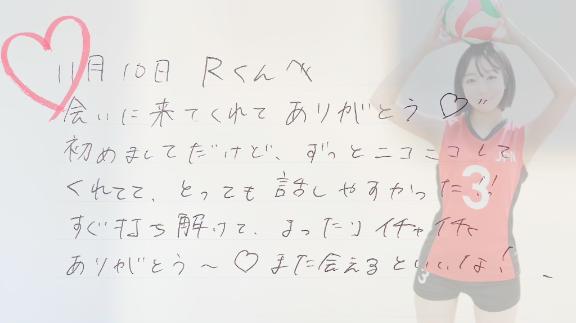 11月10日 Rくんへ
会いに来てくれてありがとう♡"
初めましてだけど、ずっとニコニコして
くれてて、とっても話しやすかった!!
すぐ打ち解けて、まったりイチャイチャ
ありがとう〜♡また会えるといいな!
3